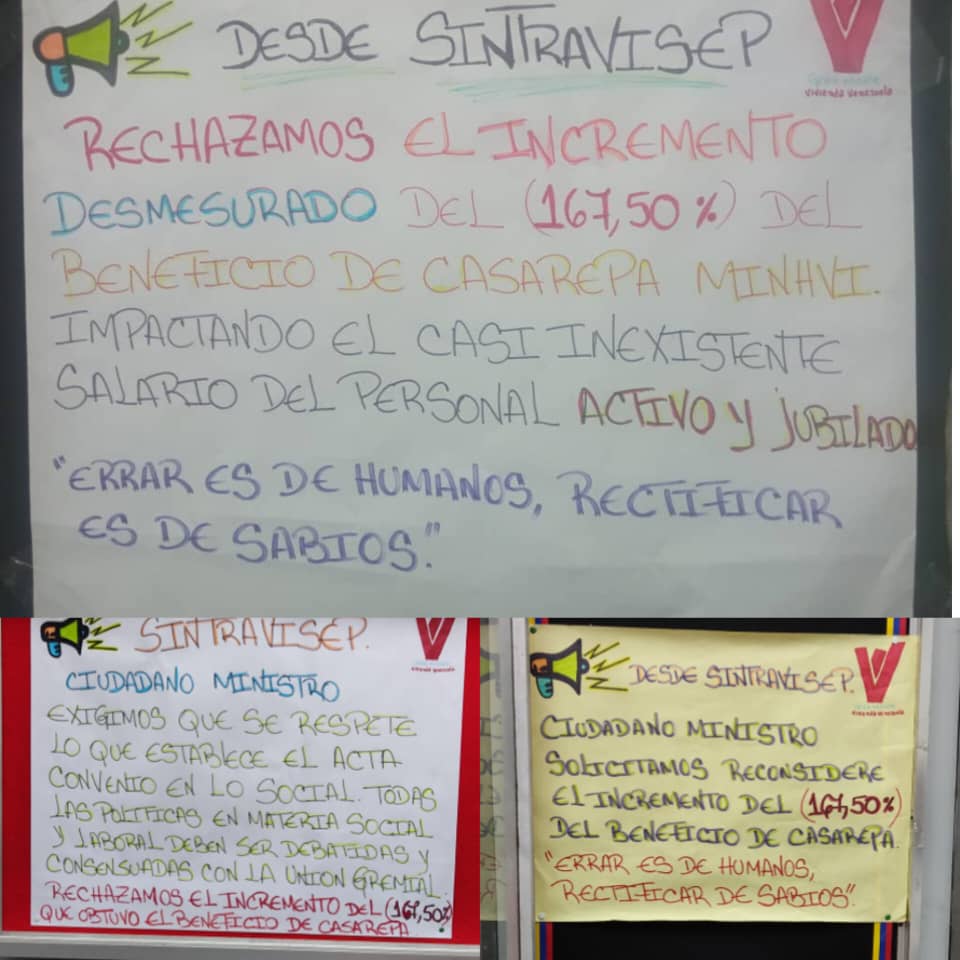 DESDE SINTRAVISEP
vivienda venezuela
RECHAZAMOS EL INCREMENTO
DESMESURADO DEL (167,50 %) DEL
BENEFICIO DE CASAREPA MINHVI.
IMPACTANDO EL CASI INEXISTENTE
SALARIO DEL PERSONAL ACTIVO y JUBILADO
"ERRAR ES DE HUMANOS, RECTIFICAR
ES DE SABIOS."
SINTRAVISEP.
CIUDADANO MINISTRO
EXIGIMOS QUE SE RESPETE
LO QUE ESTABLECE EL ACTA
CONVENIO EN LO SOCIAL. TODAS
LAS POLITICAS EN MATERIA SOCIAL
Y LABORAL DEBEN SER DEBATIDAS Y
CONSENSUADAS CON LA UNION GREMIAL.
RECHAZAMOS EL INCREMENTO DEL (167,50%)
QUE OBTUVO EL BENEFICIO DE CASAREPA
DESDE SINTRAVISEP.
vivienda venezuela
CIUDADANO MINISTRO
SOLICITAMOS RECONSIDERE
EL INCREMENTO DEL (167,50%)
DEL BENEFICIO DE CASAREPA.
"ERRAR ES DE HUMANOS,
RECTIFICAR DE SABIOS".